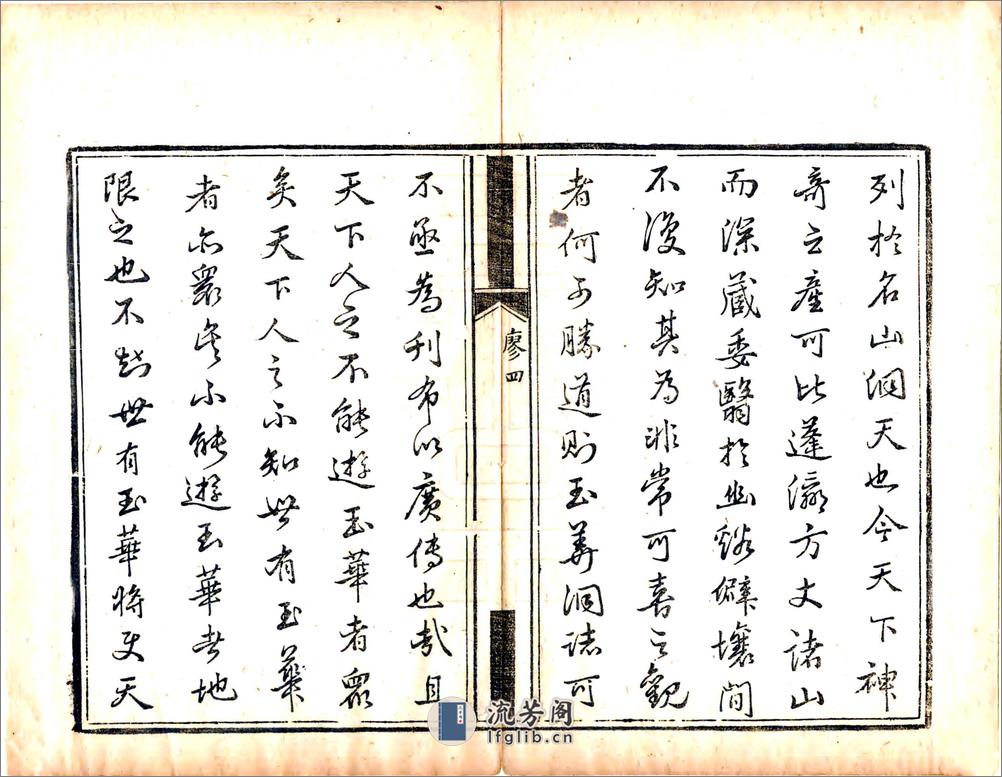 列於名山洞天也今天下神
奇之產可比蓬瀛方丈諸山
而深藏委翳於幽谿僻壤間
不復知其為非常可喜之觀
者何可勝道則玉華洞誌可
廖四
不亟為刊布以廣傳也哉且
天下人之不能遊玉華者眾
矣天下人之不知世有玉華
者亦眾矣不能遊玉華者地
限之也不知世有玉華將使天
流芳阁
lfglib.cn